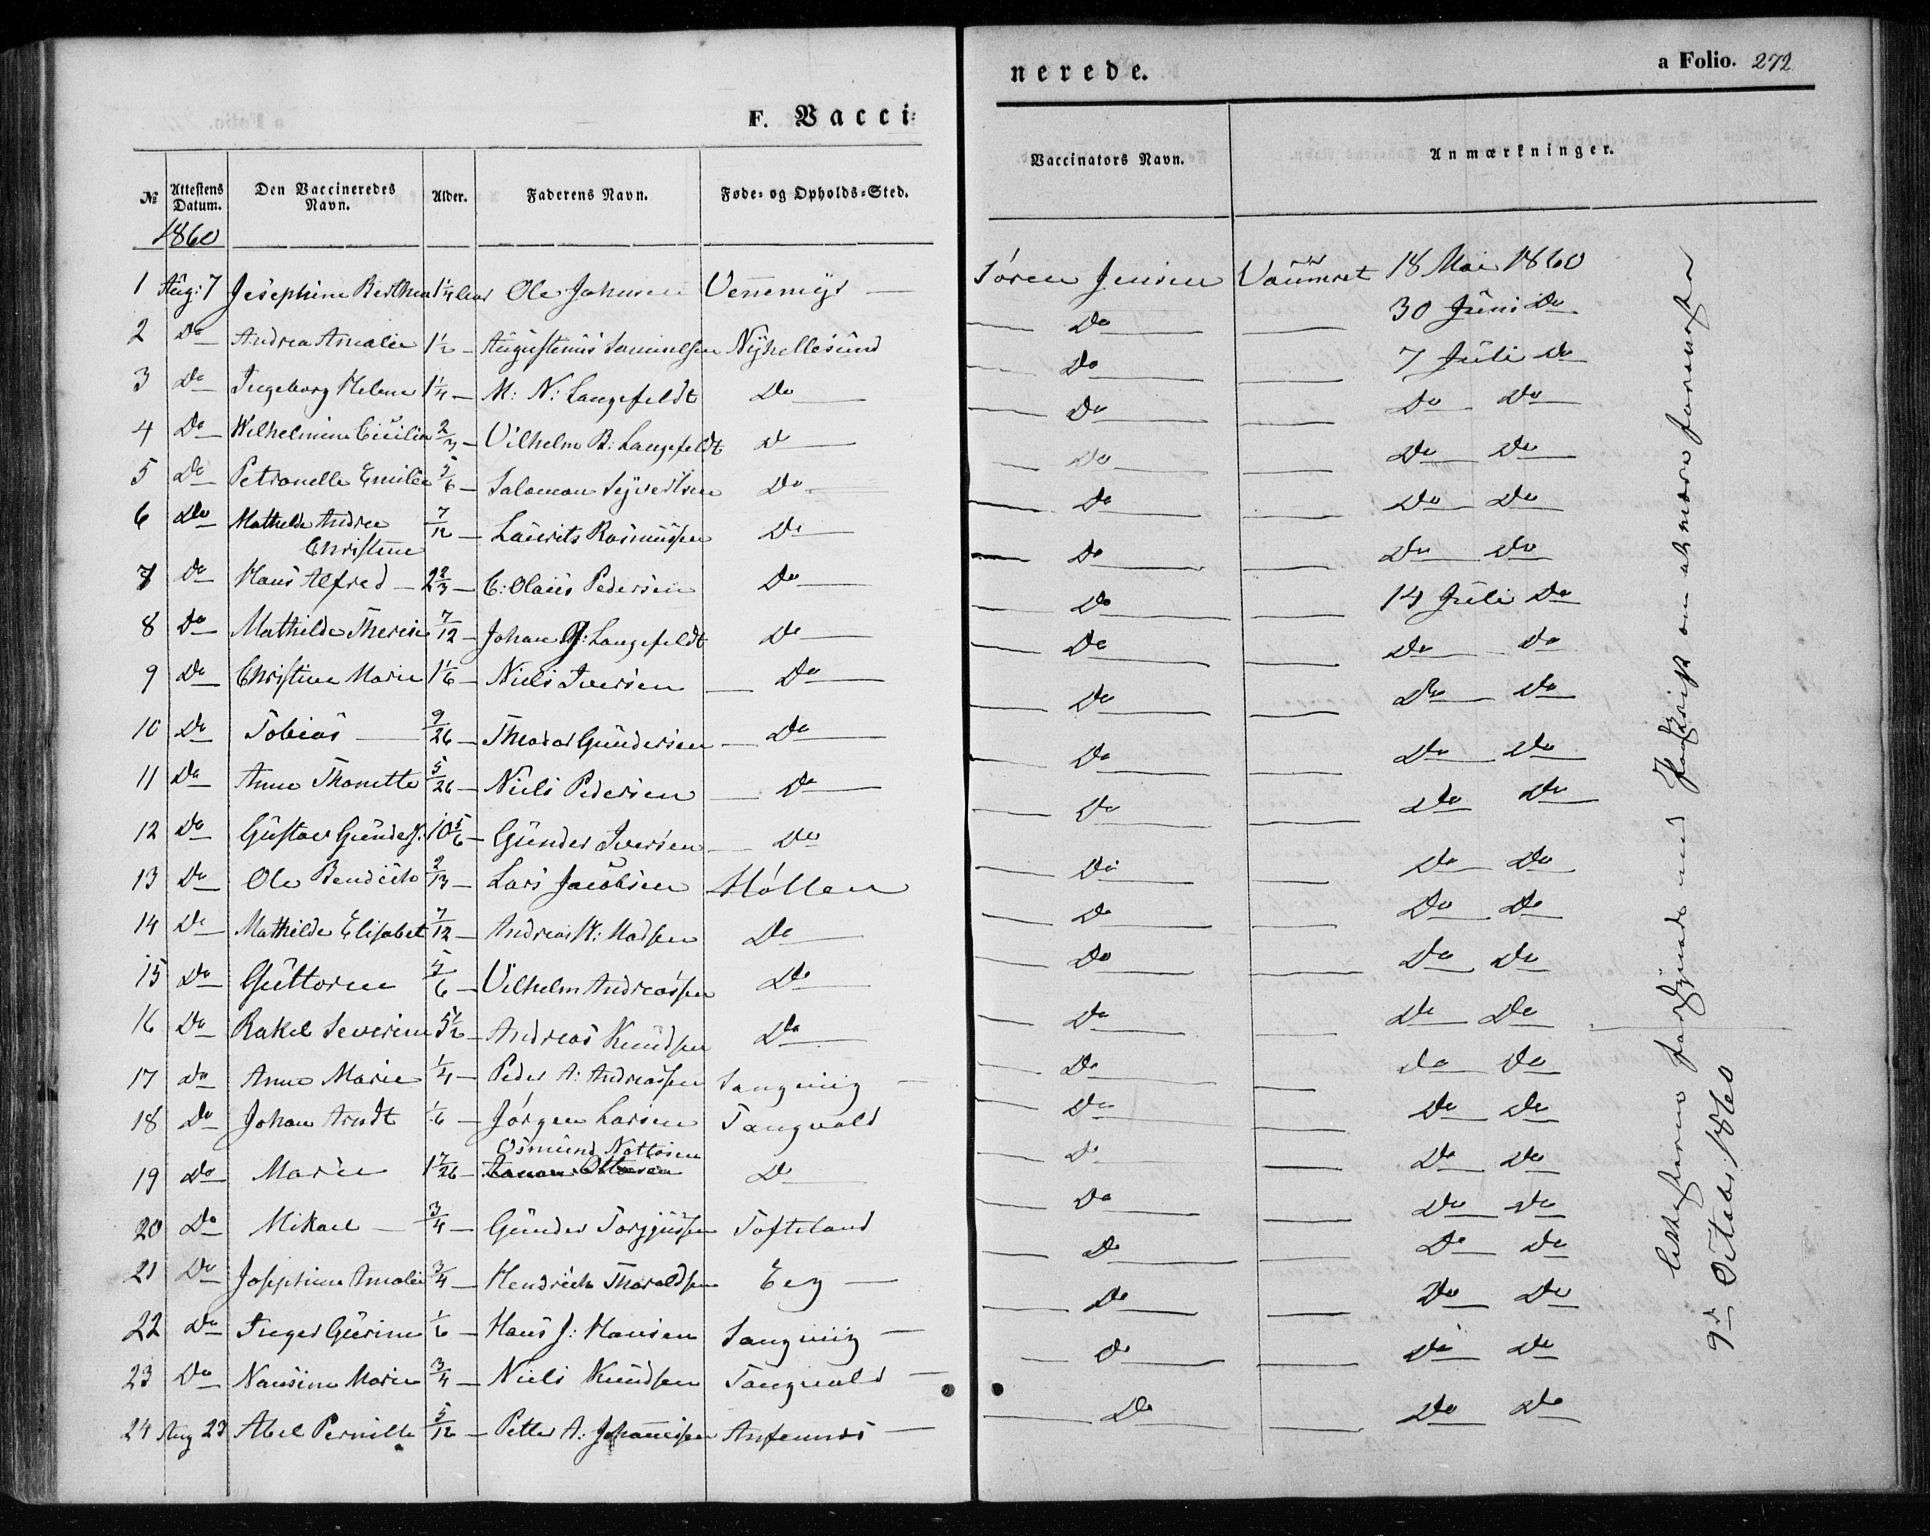 F. Vacci-
nerede.
a Folio. 272
№ Attestens Datum. Den Vaccineredes Navn. Alder. Faderens Navn. Føde- og Opholds-Sted. Vaccinators Navn. Anmærkninger.
1860
1 Aug: 7 Josephine Berthea 1 1/4 Aar Ole Johnsen Vennemyr — Søren Jensen 18 Mai 1860
2 Do Andrea Amalie 1 1/2 — Augustinus Samuelsen Nÿhellesund — Do — 30 Juni Do
3 Do Ingeborg Helene 1 1/4 — M: N: Langefeldt Do — Do — 7 Juli Do
4 Do Wilhelmine Cicilie 2/3 — Vilhelm B: Langefeldt Do — Do — Do Do
5 Do Petronelle Emilie 5/6 — Salomon Sejvertsen Do — Do — Do Do
6 Do Mathilde Andrea Christine 7/12 — Laurits Rasmussen Do — Do — Do Do
7 Do Hans Alfred — 2 2/3 — C: Olaus Pedersen Do — Do — Do Do
8 Do Mathilde Therese 7/12 — Johan G: Langefeldt Do — Do — 14 Juli Do
9 Do Christine Marie 1 1/6 — Niels Iversen — Do — Do — Do Do
10 Do Tobias — 9/26 — Thodor Gundersen — Do — Do — Do Do
11 Do Anne Thonette 5/26 — Niels Pedersen — Do — Do — Do Do
12 Do Gustav Gunders: 10 5/6 — Gunder Iversen — Do — Do — Do Do
13 Do Ole Bendich 2/13 — Lars Jacobsen Høllen — Do — Do Do
14 Do Mathilde Elisabet 7/12 — Andreas K: Madsen Do — Do — Do Do
15 Do Guttorm 5/6 — Vilhelm Andreassen Do — Do — Do Do
16 Do Rakel Severine 5 1/2 — Andreas Knudsen Do — Do — Do Do
17 Do Anne Marie 1/4 — Peder A: Andreassen Langenig — Do — Do Do
18 Do Johan Arndt 1/6 — Jørgen Larsen Tangvald — Do — Do Do
Osmund Nottosen
19 Do Marie 1 7/26 — Do — Do — Do Do
20 Do Mikael — 3/4 — Gunder Torgjussen Tofteland — Do — Do Do
21 Do Josephine Amalie 3/4 — Hendrich Thoraldsen Eeg — Do — Do Do
22 Do Inger Gurine 1/6 — Hans J: Hansen Langenig — Do — Do Do
23 Do Nansine Marie 3/4 — Niels Knudsen Tangvald — Do — Do Do
24 Aug 23 Abel Pernille 5/12 — Petter A: Johannesen — Do — Do Do
9d Octobr 1860